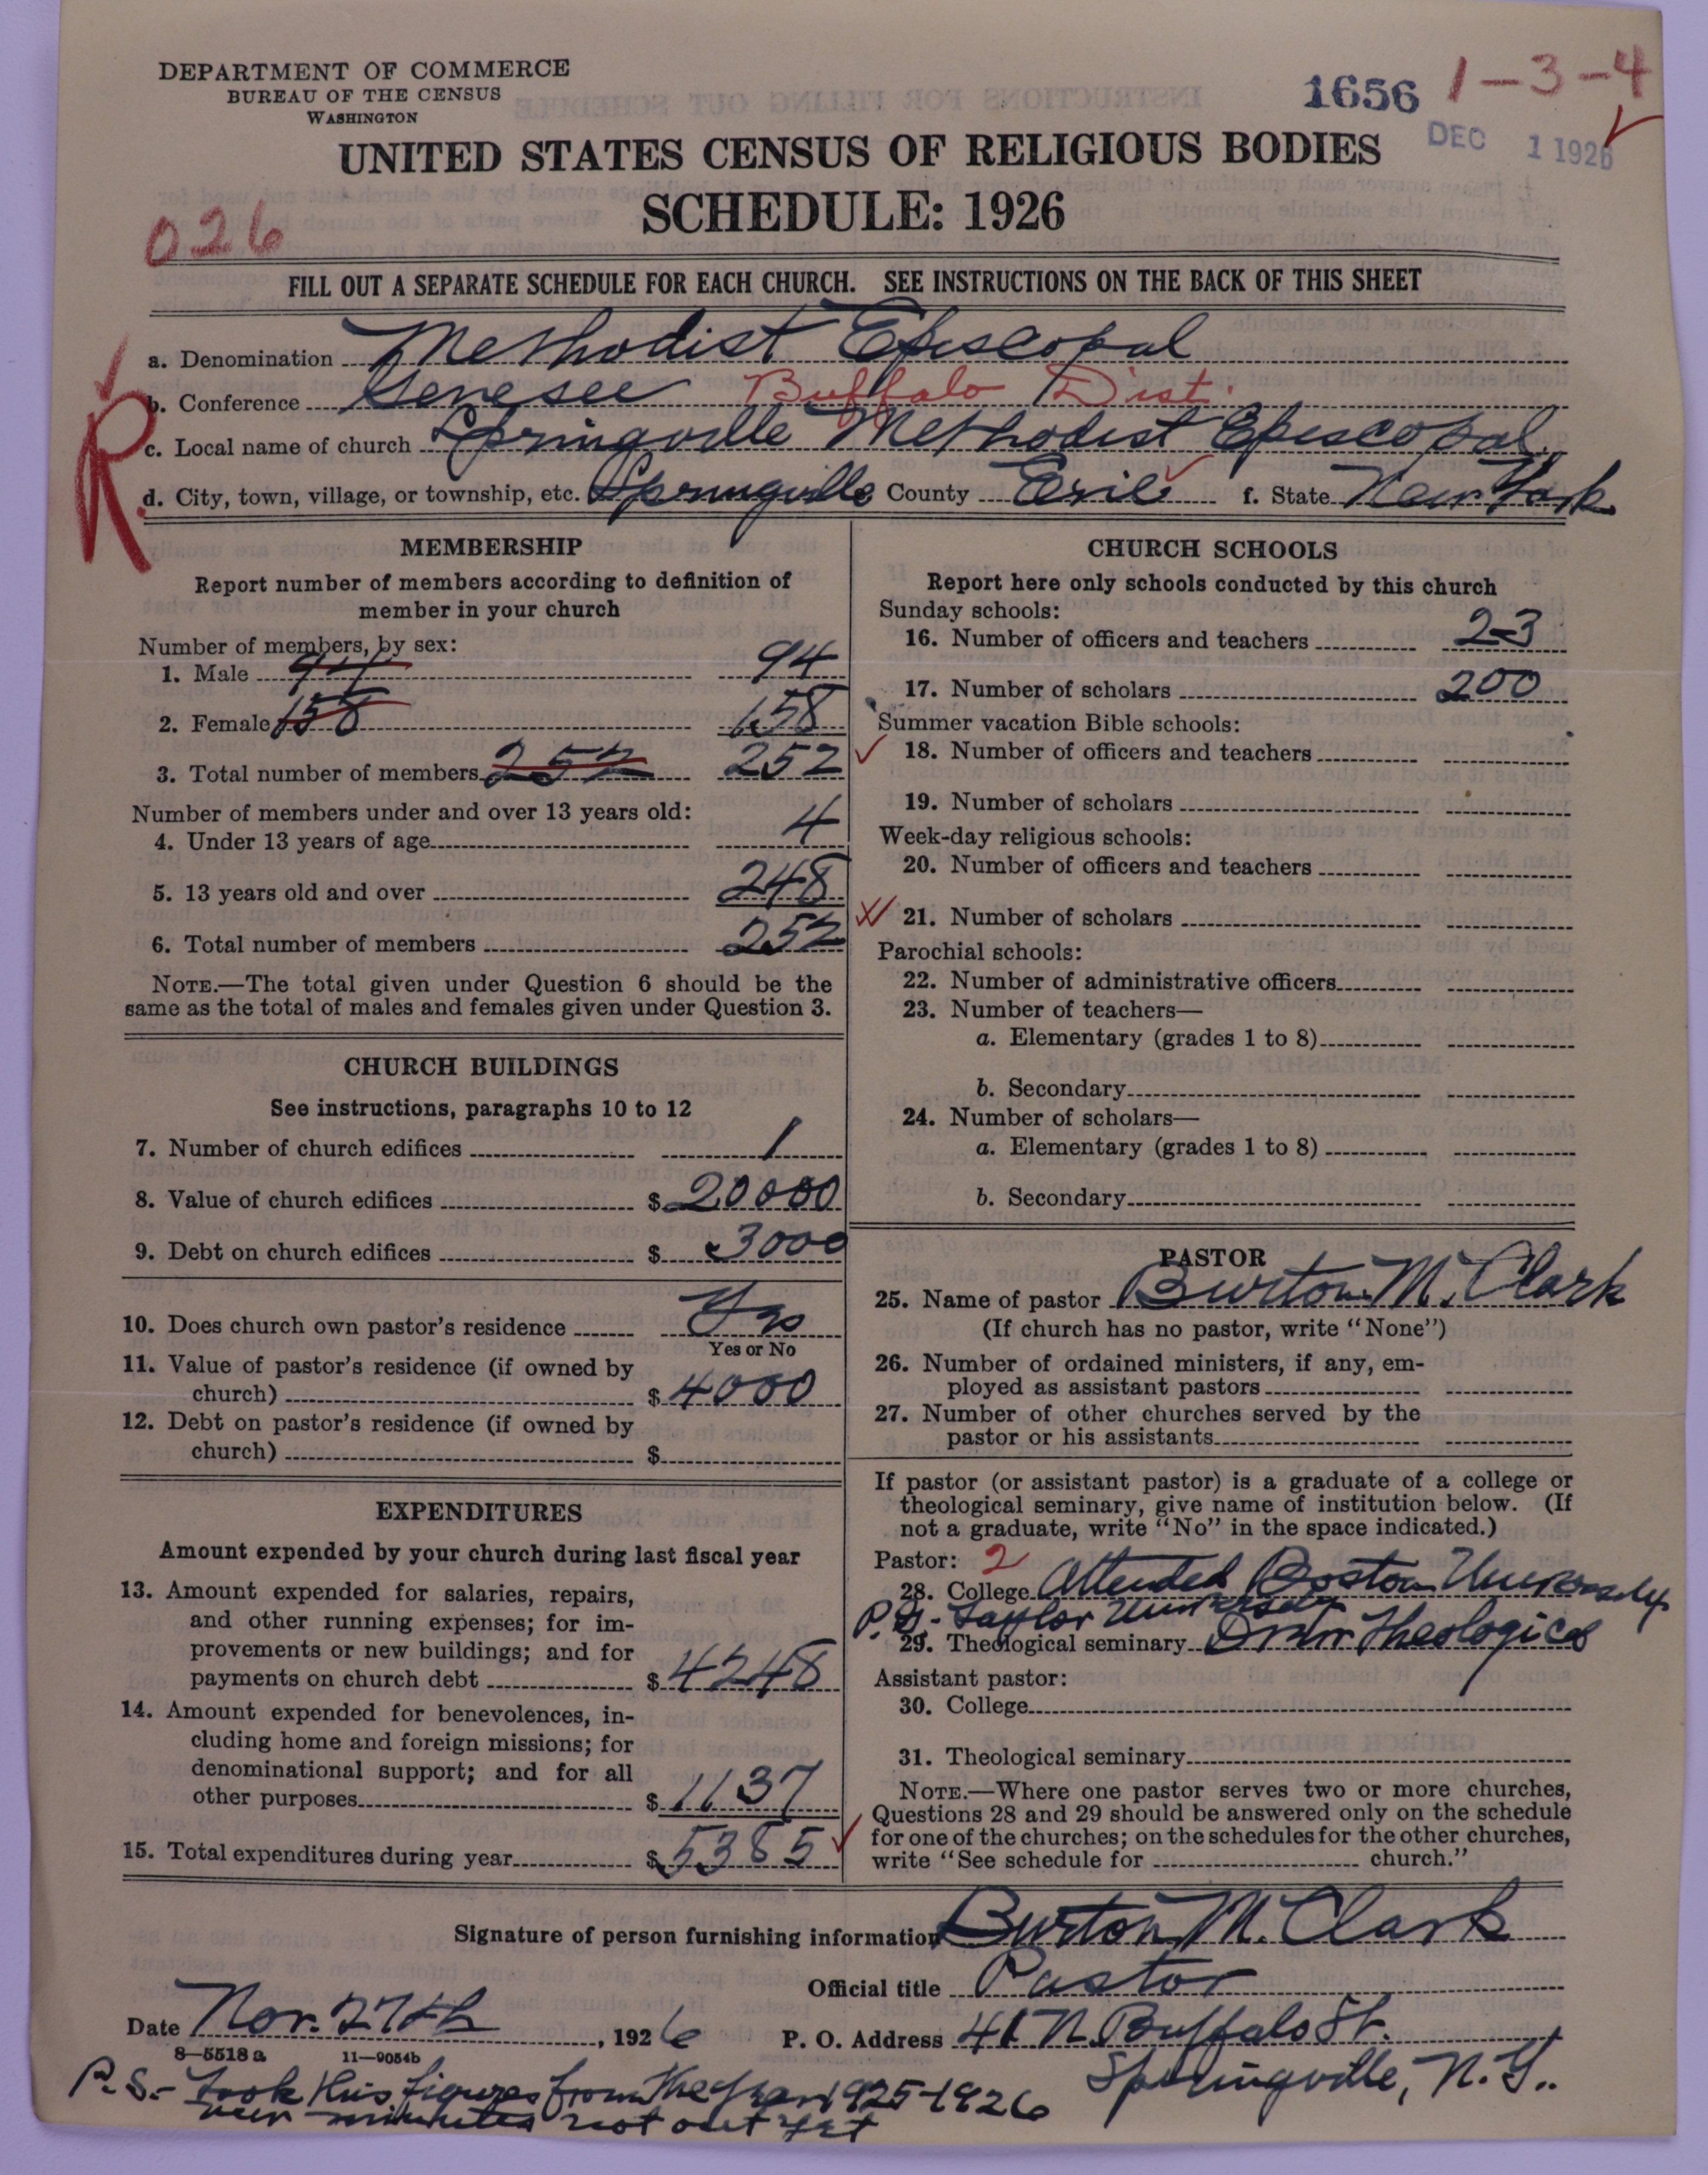 DEPARTMENT OF COMMERCE
BUREAU OF THE CENSUS
WASHINGTON
1656
1-3-4
DEC 1 1926
UNITED STATES CENSUS OF RELIGIOUS BODIES
SCHEDULE: 1926
026
FILL OUT A SEPARATE SCHEDULE FOR EACH CHURCH. SEE INSTRUCTIONS ON THE BACK OF THIS SHEET
a. Denomination Methodist Episcopal
b. Conference Genesee Buffalo Dist.
c. Local name of church Springville Methodist Episcopal
R
d. City, town, village, or township, etc. Springville County Erie f. State New York
MEMBERSHIP
Report number of members according to definition of
member in your church
Number of members, by sex:
1. Male 94 94
2. Female 158 158
3. Total number of members 252 252
Number of members under and over 13 years old:
4. Under 13 years of age 4
5. 13 years old and over 248
6. Total number of members 252
NOTE.—The total given under Question 6 should be the
same as the total of males and females given under Question 3.
CHURCH BUILDINGS
See instructions, paragraphs 10 to 12
7. Number of church edifices 1
8. Value of church edifices $ 20000
9. Debt on church edifices $ 3000
10. Does church own pastor's residence Yes
Yes or No
11. Value of pastor's residence (if owned by
church) $ 4000
12. Debt on pastor's residence (if owned by
church) $
EXPENDITURES
Amount expended by your church during last fiscal year
13. Amount expended for salaries, repairs,
and other running expenses; for im-
provements or new buildings; and for
payments on church debt $ 4248
14. Amount expended for benevolences, in-
cluding home and foreign missions; for
denominational support; and for all
other purposes $ 1137
15. Total expenditures during year $ 5385
CHURCH SCHOOLS
Report here only schools conducted by this church
Sunday schools:
16. Number of officers and teachers 23
17. Number of scholars 200
Summer vacation Bible schools:
18. Number of officers and teachers
19. Number of scholars
Week-day religious schools:
20. Number of officers and teachers
21. Number of scholars
Parochial schools:
22. Number of administrative officers
23. Number of teachers—
a. Elementary (grades 1 to 8)
b. Secondary
24. Number of scholars—
a. Elementary (grades 1 to 8)
b. Secondary
PASTOR
25. Name of pastor Burton M. Clark
(If church has no pastor, write "None")
26. Number of ordained ministers, if any, em-
ployed as assistant pastors
27. Number of other churches served by the
pastor or his assistants
If pastor (or assistant pastor) is a graduate of a college or
theological seminary, give name of institution below. (If
not a graduate, write "No" in the space indicated.)
Pastor: 2
28. College Attended Boston University
P.G. Taylor University
29. Theological seminary Drew Theological
Assistant pastor:
30. College
31. Theological seminary
NOTE.—Where one pastor serves two or more churches,
Questions 28 and 29 should be answered only on the schedule
for one of the churches; on the schedules for the other churches,
write "See schedule for church."
Signature of person furnishing information Burton M. Clark
Official title Pastor
Date Nov. 27th, 1926 P. O. Address 41 N. Buffalo St.
8-5518 a 11-9054b
Springville, N.Y..
P.S.- Took this figures from the year 1925-1926
new minutes not out yet